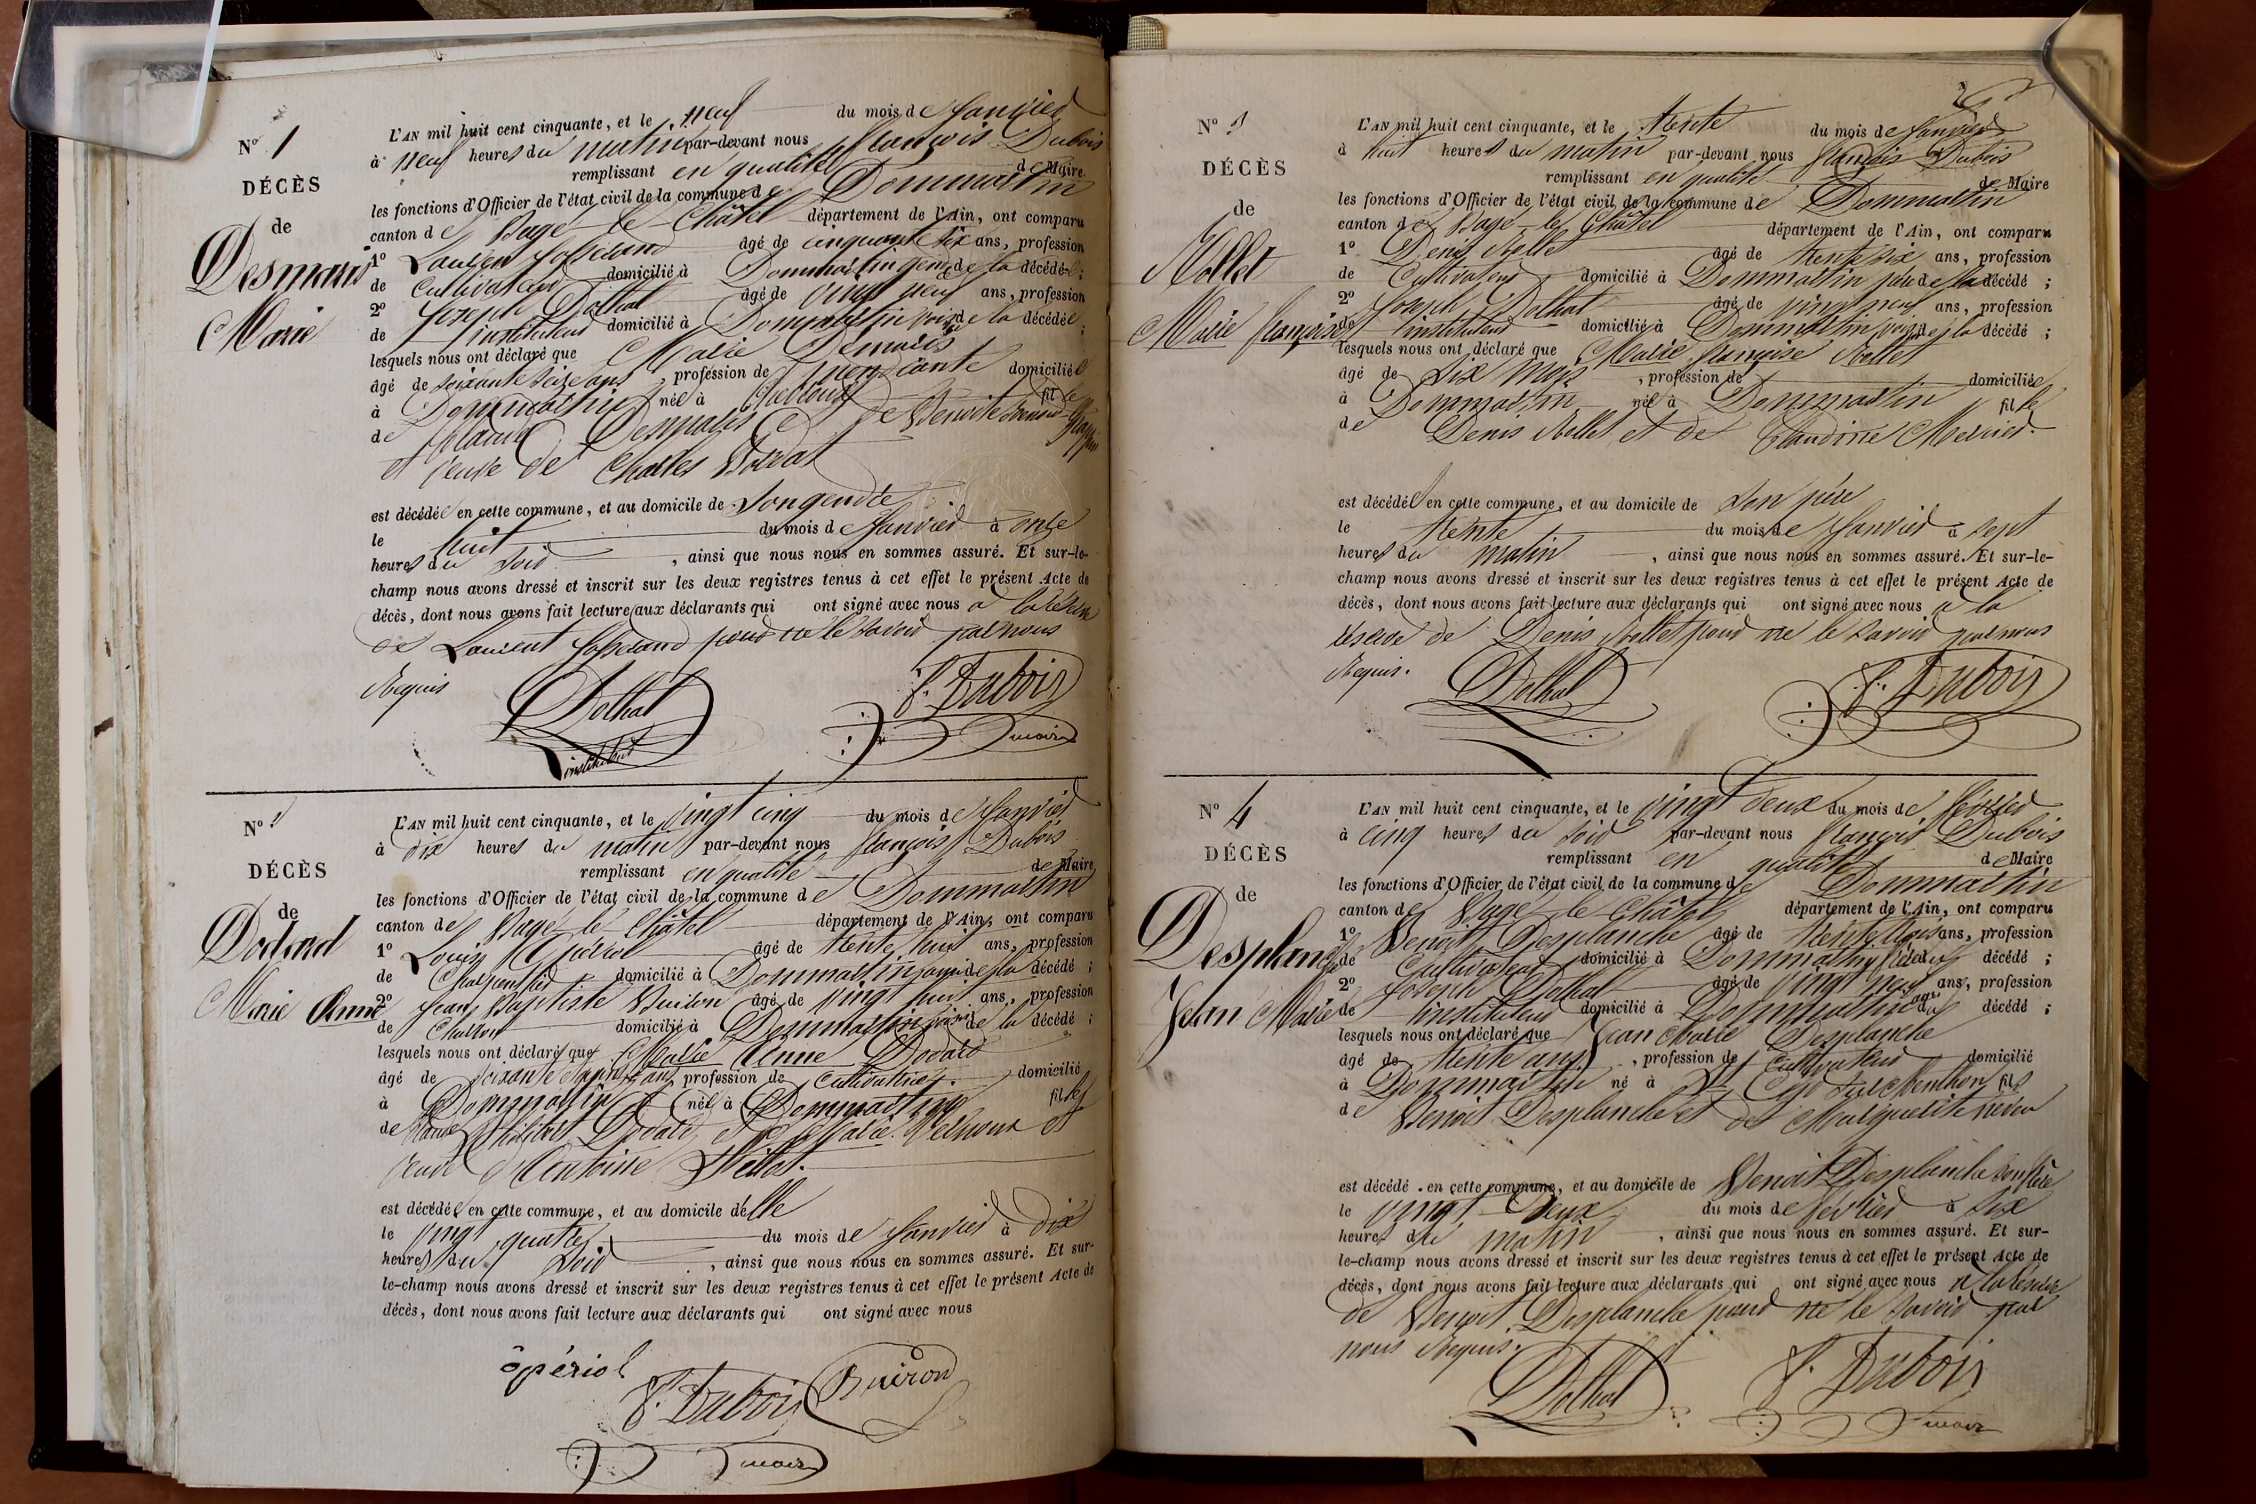 N° 1
DÉCÈS
de
Desmaris
Marie
L'AN mil huit cent cinquante, et le neuf du mois de Janvier
à neuf heures du matin par-devant nous François Dubois
remplissant en qualité de Maire
les fonctions d'Officier de l'état civil de la commune de Dommartin
canton de Bagé-le-Châtel département de l'Ain, ont comparu
1° Laurent Josserand âgé de cinquante six ans, profession
de cultivateur domicilié à Dommartin gendre de la décédée ;
2° Joseph Dothal âgé de vingt neuf ans, profession
de instituteur domicilié à Dommartin voisin de la décédée ;
lesquels nous ont déclaré que Marie Desmaris
âgé de soixante seize ans, profession de domiciliée
à Dommartin née à fille
de Claude Desmaris et de Benoite
et veuve de Charles
est décédée en cette commune, et au domicile de son gendre
le huit du mois de Janvier à onze
heures du soir, ainsi que nous nous en sommes assuré. Et sur-le-
champ nous avons dressé et inscrit sur les deux registres tenus à cet effet le présent Acte de
décès, dont nous avons fait lecture aux déclarants qui ont signé avec nous à la réserve
de Laurent Josserand pour ne le savoir par nous
Requis
Dothal
instituteur
F. Dubois
maire
N° 2
DÉCÈS
de
Dodard
Marie Anne
L'AN mil huit cent cinquante, et le vingt cinq du mois de Janvier
à dix heures du matin par-devant nous François Dubois
remplissant en qualité de Maire
les fonctions d'Officier de l'état civil de la commune de Dommartin
canton de Bagé-le-Châtel département de l'Ain, ont comparu
1° Louis âgé de trente huit ans, profession
de charpentier domicilié à Dommartin ami de la décédé ;
2° Jean Baptiste Buiron âgé de vingt huit ans, profession
de charron domicilié à Dommartin voisin de la décédé ;
lesquels nous ont déclaré que Marie Anne Dodard
âgé de soixante ans, profession de cultivatrice domicilié
à Dommartin et née à Dommartin fille
de Philibert Dodard et de Marie et
veuve d'Antoine
est décédée en cette commune, et au domicile d'elle
le vingt quatre du mois de Janvier à dix
heures du soir, ainsi que nous nous en sommes assuré. Et sur-
le-champ nous avons dressé et inscrit sur les deux registres tenus à cet effet le présent Acte de
décès, dont nous avons fait lecture aux déclarants qui ont signé avec nous
F. Dubois
Buiron
maire
N° 3
DÉCÈS
de
Rollet
Marie Françoise
L'AN mil huit cent cinquante, et le trente du mois de Janvier
à huit heures du matin par-devant nous François Dubois
remplissant en qualité de Maire
les fonctions d'Officier de l'état civil de la commune de Dommartin
canton de Bagé-le-Châtel département de l'Ain, ont comparu
1° Denis Rollet âgé de trente six ans, profession
de Cultivateur domicilié à Dommartin père de la décédé ;
2° Joseph Dothal âgé de vingt neuf ans, profession
de instituteur domicilié à Dommartin voisin de la décédé ;
lesquels nous ont déclaré que Marie Françoise Rollet
âgé de six mois, profession de domiciliée
à Dommartin née à Dommartin fille
de Denis Rollet et de Claudine Mercier.
est décédée en cette commune, et au domicile de son père
le trente du mois de Janvier à sept
heures du matin, ainsi que nous nous en sommes assuré. Et sur-le-
champ nous avons dressé et inscrit sur les deux registres tenus à cet effet le présent Acte de
décès, dont nous avons fait lecture aux déclarants qui ont signé avec nous à la
réserve de Denis Rollet pour ne le savoir par nous
Requis.
Dothal
F. Dubois
N° 4
DÉCÈS
de
Desplanche
Jean Marie
L'AN mil huit cent cinquante, et le vingt deux du mois de février
à cinq heures du soir par-devant nous François Dubois
remplissant en qualité de Maire
les fonctions d'Officier de l'état civil de la commune de Dommartin
canton de Bagé-le-Châtel département de l'Ain, ont comparu
1° Benoit Desplanche âgé de trente trois ans, profession
de Cultivateur domicilié à Dommartin frère du décédé ;
2° Joseph Dothal âgé de vingt neuf ans, profession
de instituteur domicilié à Dommartin ami du décédé ;
lesquels nous ont déclaré que Jean Marie Desplanche
âgé de trente ans, profession de cultivateur domicilié
à Dommartin né à St Cyr sur Menthon fils
de Benoit Desplanche et de Marguerite
est décédé en cette commune, et au domicile de Benoit Desplanche son frère
le vingt deux du mois de février à six
heures du matin, ainsi que nous nous en sommes assuré. Et sur-
le-champ nous avons dressé et inscrit sur les deux registres tenus à cet effet le présent Acte de
décès, dont nous avons fait lecture aux déclarants qui ont signé avec nous à la réserve
de Benoit Desplanche pour ne le savoir par
nous Requis.
Dothal
F. Dubois
maire